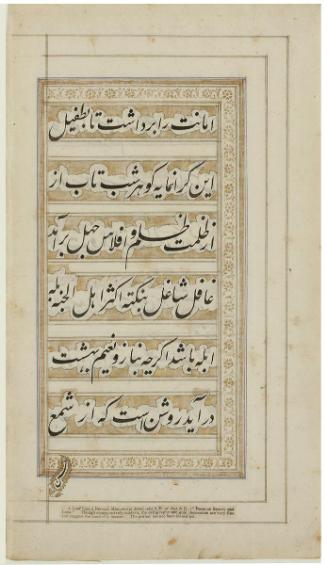 امانت را برداشت تا بطفیل
این کرانمایه کوهر شب تاب از
از ظلمت ظلم و افلاس جهل برآید
غافل شاغل بنکته اکثر اهل الجنة بله
ابله باشد اکرچه بناز و نعیم بهشت
در آید روشن است که از شمع